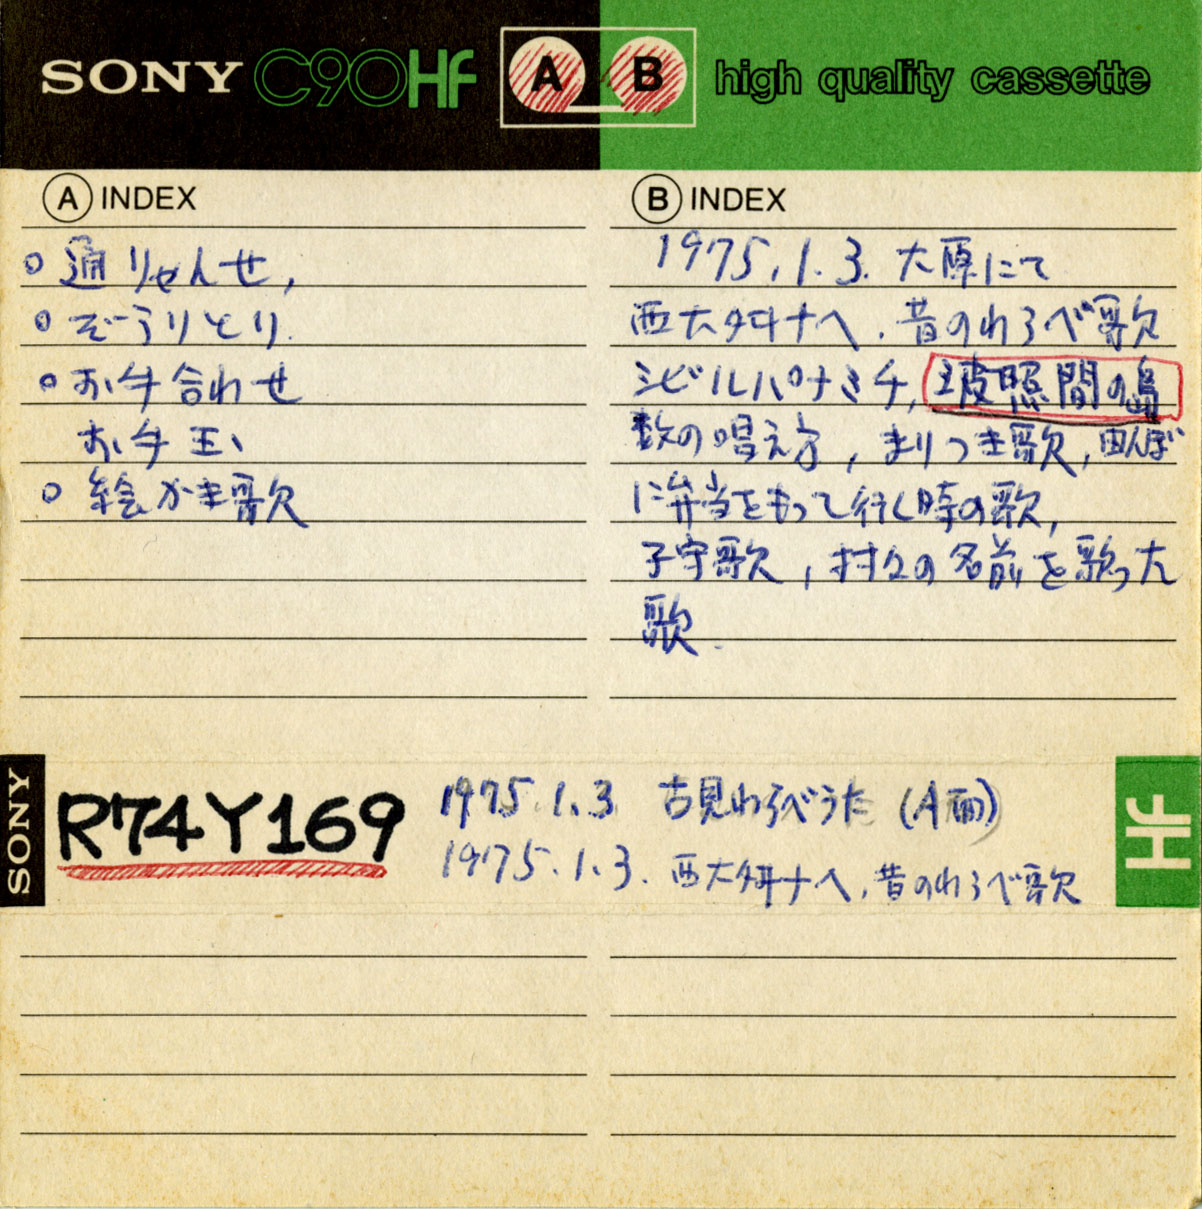 SONY C90HF A B high quality cassette
A INDEX
○ 通りゃんせ,
○ ぞうりとり.
○ お手合わせ
お手玉、
○ 絵かき歌
B INDEX
1975.1.3. 大原にて
西大舛ナヘ、昔のわらべ歌
シビルパナミチ, 波照間の島
数の唱え方, まりつき歌, 田んぼ
に弁当をもって行く時の歌,
子守歌, 村々の名前を歌った
歌.
SONY
R74Y169
1975.1.3 古見わらべうた (A面)
1975.1.3. 西大舛ナヘ、昔のわらべ歌
HF